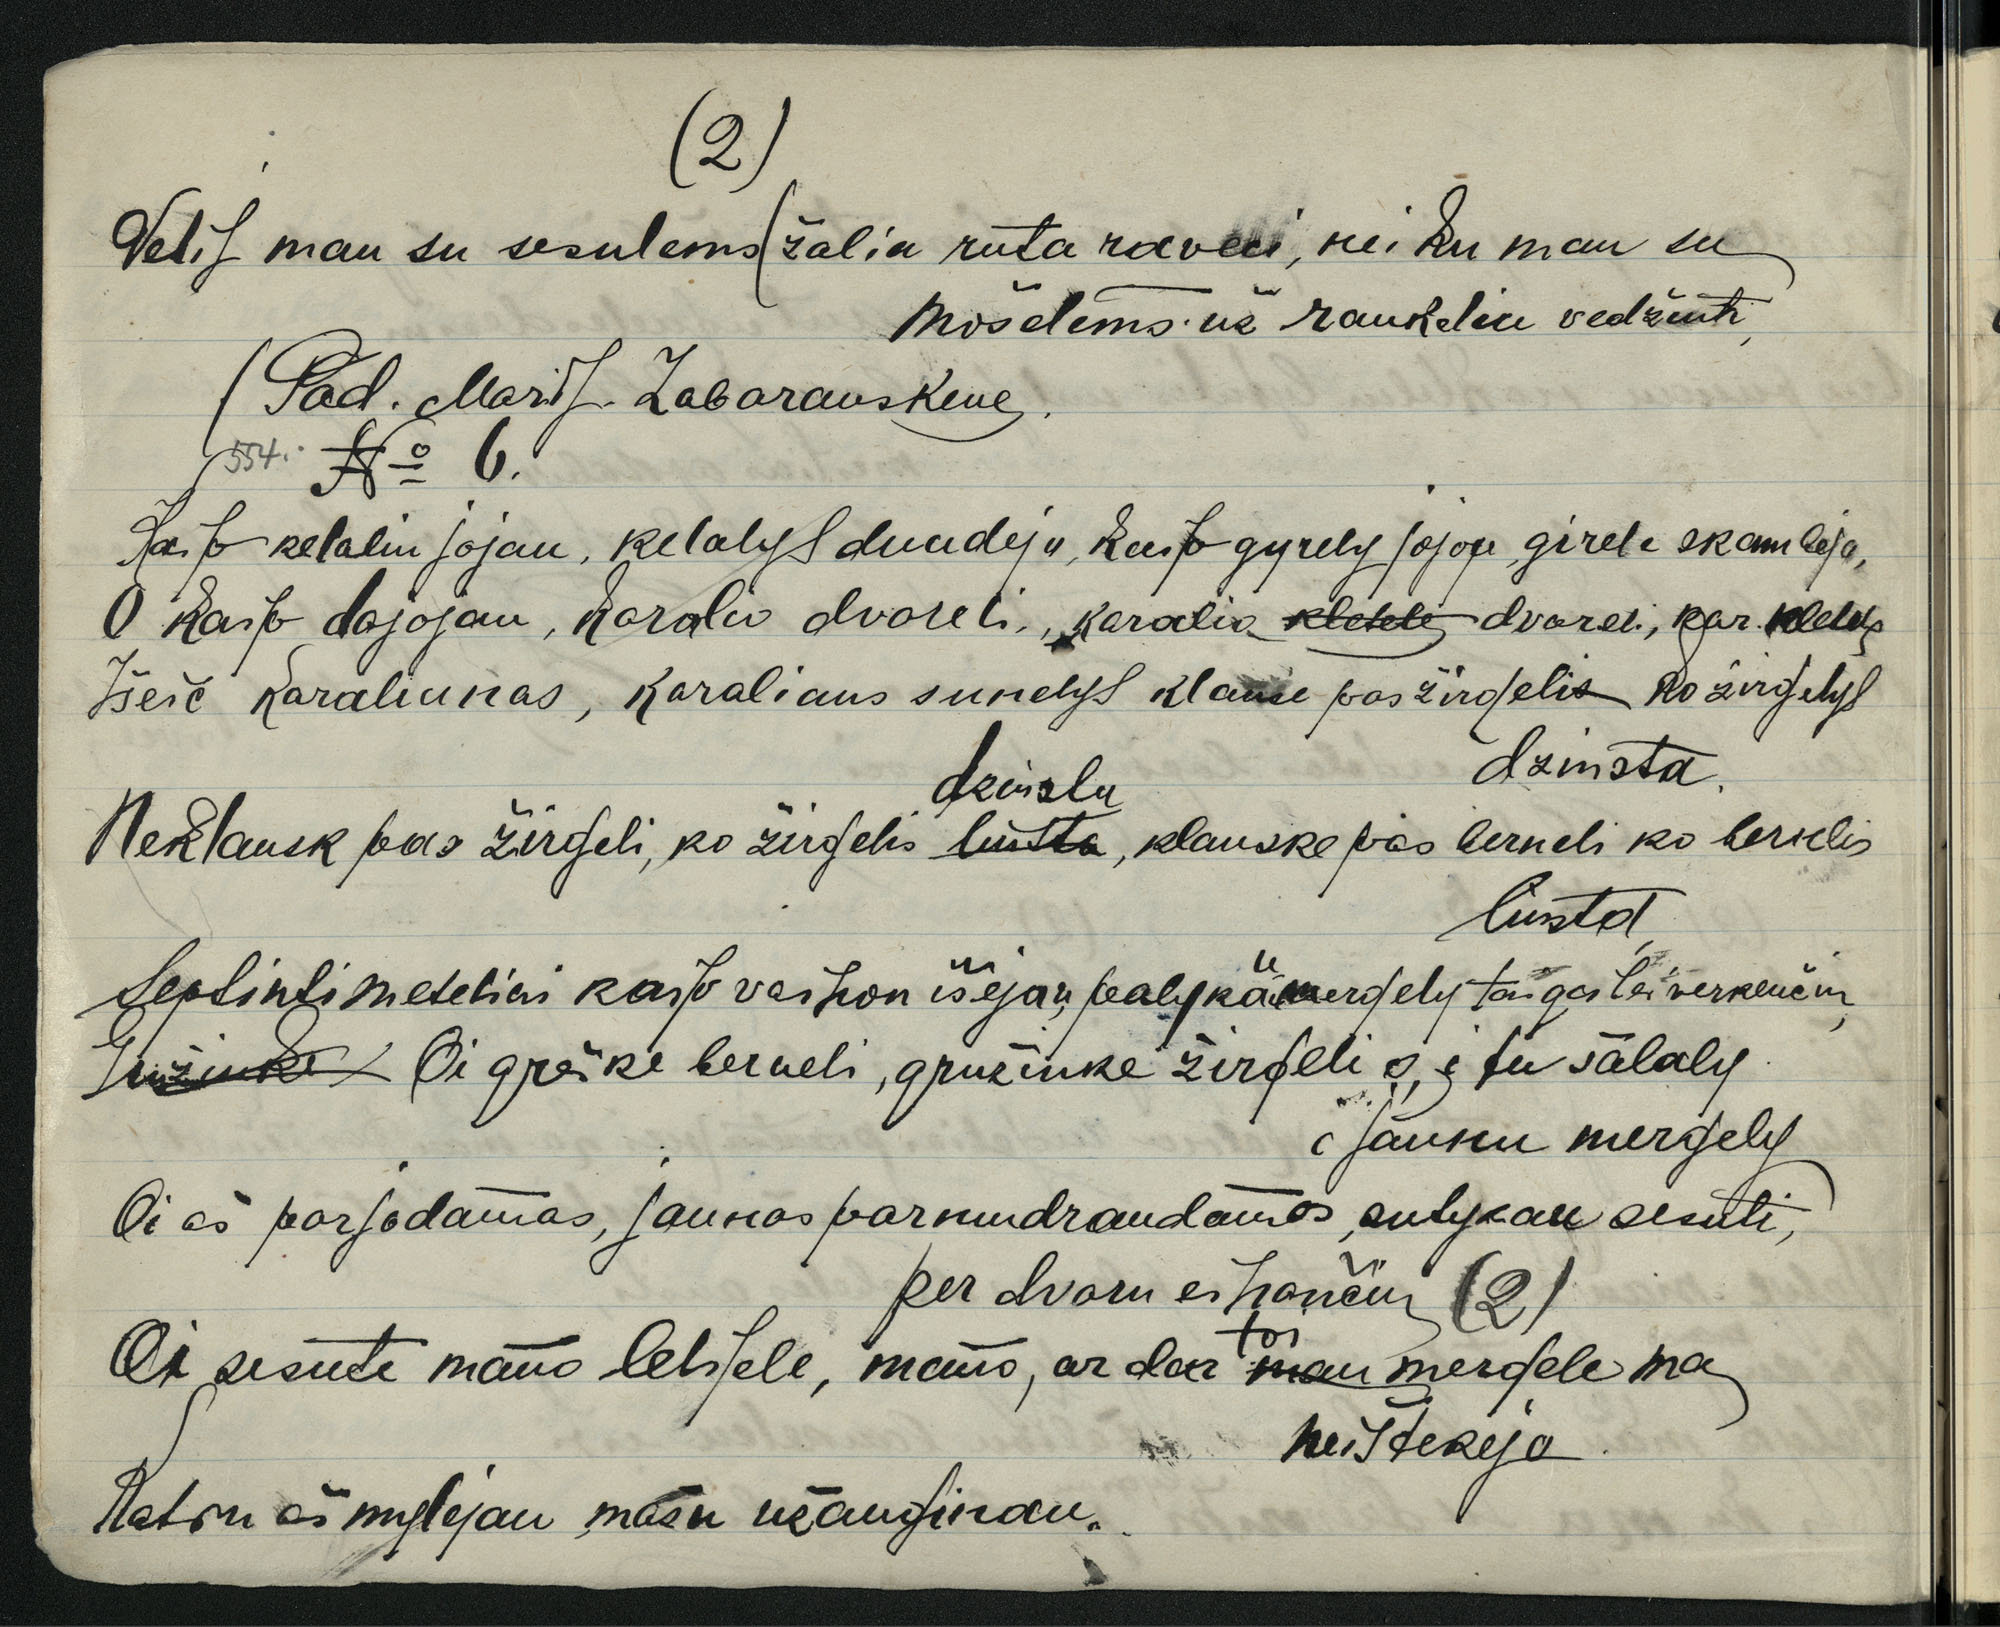 (2)
Velif man su sesulems (žalia ruta raveci, nei ku man su
mošelems už rankeliu vedžuti,
(Pad. Marif. Zabarauskene.
554. № 6.
Kaip kelaliu jojau, kelalys dundėju, kaip gyrely jojou, girele skambėja,
O kaip dajojau, karaliv dvareli, karalio klelele dvareli, par klelely
Išeič karaliunas, karaliaus sunelys klause pas žirgelis ko žirgelys
dzinsta.
dzinslu
Neklausk pas žirgeli, ko žirgelis liusta, klauske pas berneli ko bernelis
liusta
Septinti meteliai kaip vaihon išėjau, palyka mergely taigas lei verkenčiu,
Gružinke Oi greške berneli, gružinke žirgeli s, i tu šalaly
i jaunu mergely
Oi aš parjodamas, jaunas parnudraudamas, sutykau sesuti,
per dvaru eihančiu (2)
toi
Oi sesute mano lelijele, mano, ar dar man mergele na
neištekėja
Katru aš mylėjau, mažu užauginau.